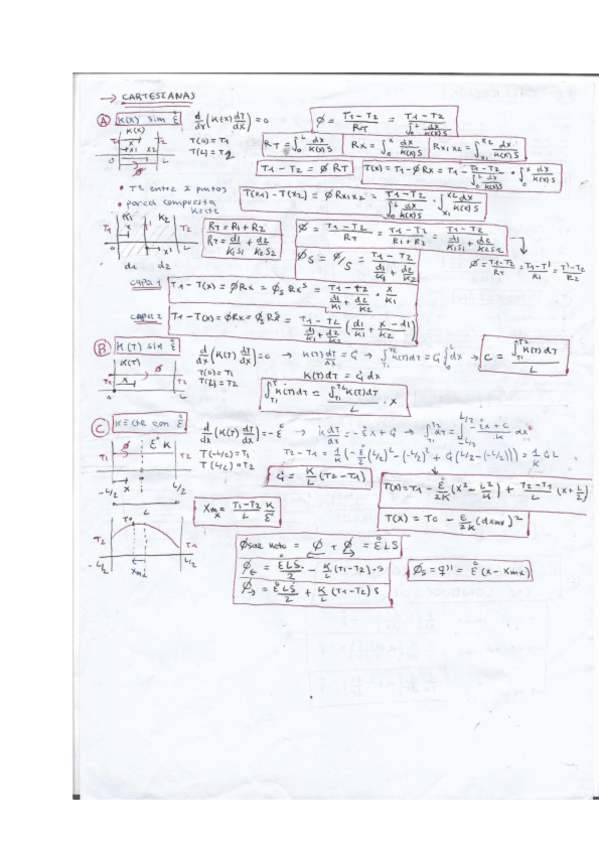 → CARTESIANAS
Ⓐ K(x) sin ε̊ d/dx (K(x) dT/dx) = 0 φ = (T1 - T2)/RT = (T1 - T2)/∫₀ᴸ dx/K(x)S
K(x) T(0) = T1 T(L) = T2
T1 x x1 x2 T2 0 L φ
RT = ∫₀ᴸ dx/K(x)S Rx = ∫₀ˣ dx/K(x)S Rx1x2 = ∫ₓ₁ˣ² dx/K(x)S
T1 - T2 = φ RT T(x) = T1 - φRx = T1 - (T1 - T2)/(∫₀ᴸ dx/K(x)S) · ∫₀ˣ dx/K(x)S
• Tª entre 2 puntos T(x1) - T(x2) = φ Rx1x2 = (T1 - T2)/(∫₀ᴸ dx/K(x)S) · ∫ₓ₁ˣ² dx/K(x)S
• pared compuesta
Kcte
K1 K2 T1 T2 x x1 d1 d2
RT = R1 + R2
RT = d1/K1S1 + d2/K2S2
φ = (T1 - T2)/RT = (T1 - T2)/(R1 + R2) = (T1 - T2)/(d1/K1S1 + d2/K2S2)
φs = φ/S = (T1 - T2)/(d1/K1 + d2/K2)
φ = (T1 - T2)/RT = (T1 - T')/R1 = (T' - T2)/R2
capa 1 T1 - T(x) = φRx = φs Rxˢ = (T1 - T2)/(d1/K1 + d2/K2) · x/K1
capa 2 T1 - T(x) = φRx = φs Rxˢ = (T1 - T2)/(d1/K1 + d2/K2) (d1/K1 + (x - d1)/K2)
Ⓑ K(T) sin ε̊ d/dx (K(T) dT/dx) = 0 → K(T) dT/dx = C → ∫T1^T2 K(T)dT = C ∫₀ᴸ dx → C = (∫T1^T2 K(T)dT)/L
K(T) T1 T2 x φ 0 L
T(0) = T1
T(L) = T2
K(T) dT = C dx
∫T1^T K(T)dT = (∫T1^T2 K(T)dT)/L · x
Ⓒ K = cte con ε̊ d/dx (K(T) dT/dx) = -ε̊ → K dT/dx = -ε̊x + C → ∫T1^T2 dT = ∫-L/2^L/2 (-ε̊x + C)/K dx
φ ε̊ K T1 T2 x -L/2 L/2 L
T(-L/2) = T1
T(L/2) = T2
T2 - T1 = 1/K (-ε̊/2 (L/2)² - (-L/2)² + C(L/2 - (-L/2))) = 1/K CL
C = K/L (T2 - T1)
T(x) = T1 - ε̊/2K (x² - L²/4) + (T2 - T1)/L (x + L/2)
T0 T2 T1 -L/2 L/2 Xmx
Xmx = (T1 - T2)/L K/ε̊
T(x) = T0 - ε̊/2K (dxmx)²
φsale neto = φ← + φ→ = ε̊LS
φ← = ε̊LS/2 - K/L (T1 - T2)·S
φs = q'' = ε̊(x - xmx)
φ→ = ε̊LS/2 + K/L (T1 - T2) S